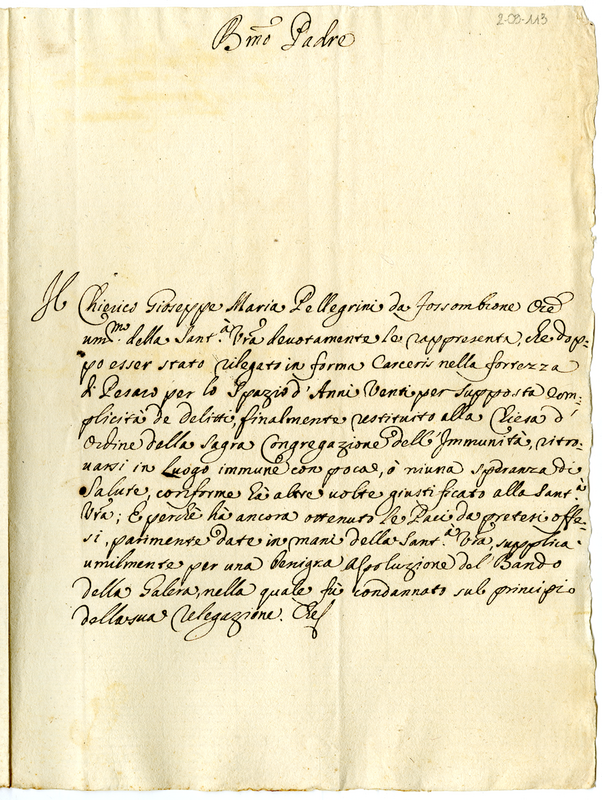 2-08-113
Bmo Padre
Il Chierico Gioseppe Maria Pellegrini da Fossombrone Ore
ummo. della Sant.a Vra devotamente le rappresenta, che dop=
po esser stato rilegato in forma Carceris nella fortezza
di Pesaro per lo Spazio d'Anni Venti per supposta Com=
plicità de delitti, finalmente restituito alla Chiesa d'
Ordine della Sagra Congregazione dell'Immunità, ritro=
varsi in Luogo immune con poca, ò niuna Speranza di
Salute, conforme hà altre volte giustificato alla Sant.a
Vra; E perche hà ancora ottenuto le Paci da pretesi offe=
si, parimente date in mani della Sant.a Vra, supplica
umilmente per una benigna Assoluzione del Bando
della Galera, nella quale fù condannato sul principio
della sua relegazione. Che